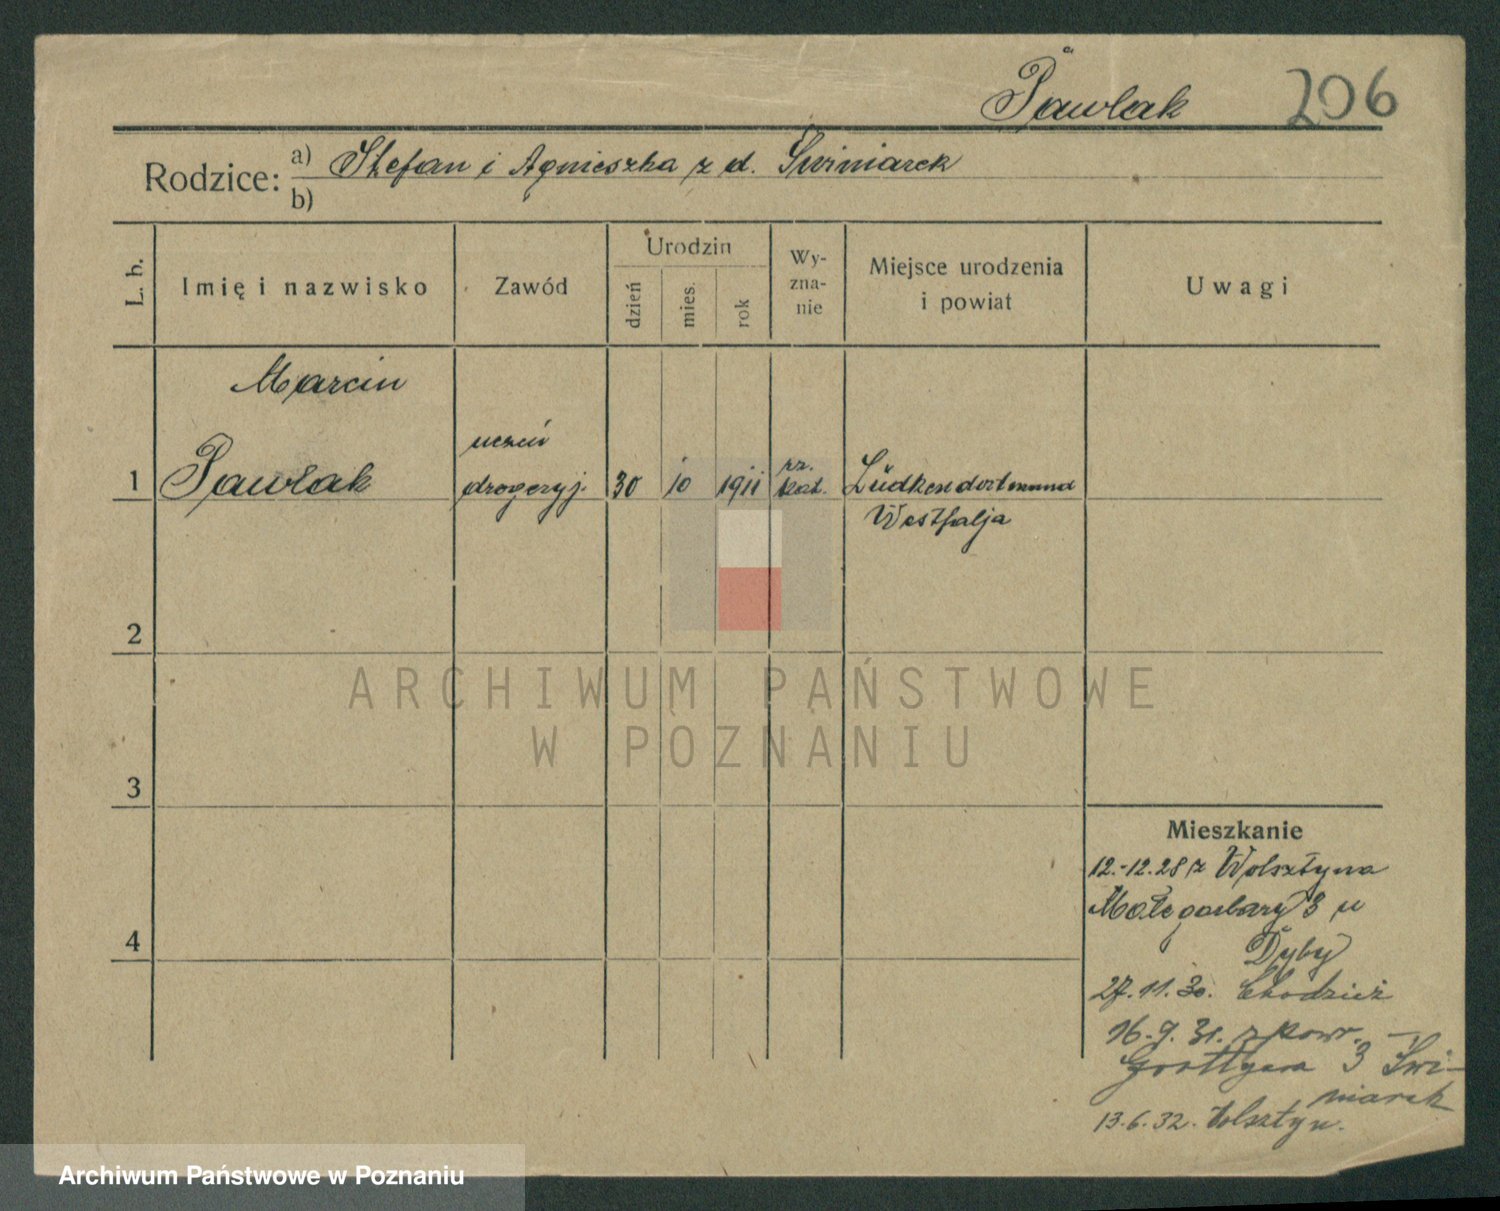 Pawlak 206
Rodzice: a) Stefan i Agnieszka z d. Świniarek
b)
L. b. Imię i nazwisko Zawód Urodzin dzień mies. rok Wy-zna-nie Miejsce urodzenia i powiat Uwagi
Marcin
uczeń
1 Pawlak drogeryj. 30 10 1911 rz. kat. Lüdkendortmund
Westfalja
2
ARCHIWUM PAŃSTWOWE
W POZNANIU
3
Mieszkanie
12.-12.28 z Wolsztyna
Małe garbary 3 u
Dyby
4
27.11.30. Chodzież
16.9.31. z powr. —
3 Świ-
niarek
13.6.32. Wolsztyn.
Archiwum Państwowe w Poznaniu